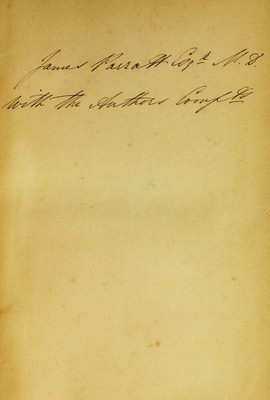 James Parratt Esqr. M.D.
with the Authors Compts